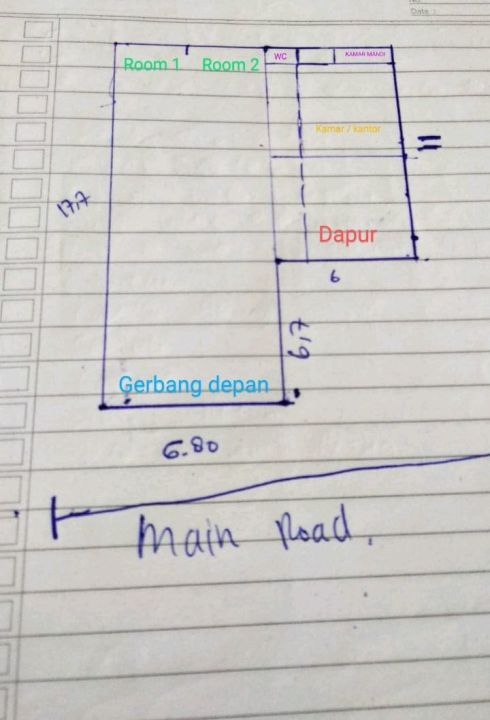 No.
Date :
WC
KAMAR MANDI
Room 1
Room 2
Kamar / kantor
17,7
Dapur
6
6,7
Gerbang depan
6.80
Main Road.